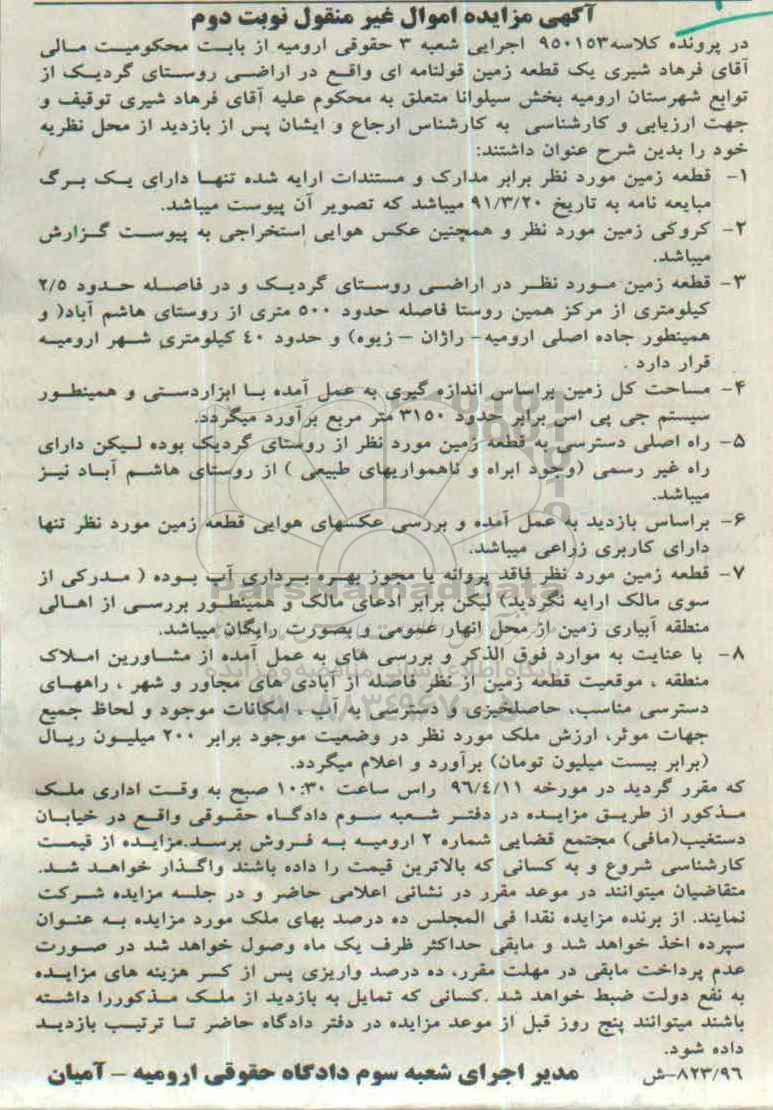 آگهی مزایده اموال غیر منقول نوبت دوم
در پرونده کلاسه۹۵۰۱۵۳ اجرایی شعبه ۳ حقوقی ارومیه از بابت محکومیت مالی
آقای فرهاد شیری یک قطعه زمین قولنامه ای واقع در اراضی روستای گردیک از
توابع شهرستان ارومیه بخش سیلوانا متعلق به محکوم علیه آقای فرهاد شیری توقیف و
جهت ارزیابی و کارشناسی به کارشناس ارجاع و ایشان پس از بازدید از محل نظریه
خود را بدین شرح عنوان داشتند:
۱- قطعه زمین مورد نظر برابر مدارک و مستندات ارایه شده تنها دارای یک برگ
مبایعه نامه به تاریخ ۹۱/۳/۲۰ میباشد که تصویر آن پیوست میباشد.
۲- کروکی زمین مورد نظر و همچنین عکس هوایی استخراجی به پیوست گزارش
میباشد.
۳- قطعه زمین مورد نظر در اراضی روستای گردیک و در فاصله حدود ۲/۵
کیلومتری از مرکز همین روستا فاصله حدود ۵۰۰ متری از روستای هاشم آباد( و
همینطور جاده اصلی ارومیه- راژان – زیوه) و حدود ۴۰ کیلومتری شهر ارومیه
قرار دارد .
۴- مساحت کل زمین براساس اندازه گیری به عمل آمده با ابزاردستی و همینطور
سیستم جی پی اس برابر حدود ۳۱۵۰ متر مربع برآورد میگردد.
۵- راه اصلی دسترسی به قطعه زمین مورد نظر از روستای گردیک بوده لیکن دارای
راه غیر رسمی (وجود ابراه و ناهمواریهای طبیعی ) از روستای هاشم آباد نیز
میباشد.
۶- براساس بازدید به عمل آمده و بررسی عکسهای هوایی قطعه زمین مورد نظر تنها
دارای کاربری زراعی میباشد.
۷- قطعه زمین مورد نظر فاقد پروانه یا مجوز بهره برداری آب بوده ( مدرکی از
سوی مالک ارایه نگردید) لیکن برابر ادعای مالک و همینطور بررسی از اهالی
منطقه آبیاری زمین از محل انهار عمومی و بصورت رایگان میباشد.
۸- با عنایت به موارد فوق الذکر و بررسی های به عمل آمده از مشاورین املاک
منطقه ، موقعیت قطعه زمین از نظر فاصله از آبادی های مجاور و شهر ، راههای
دسترسی مناسب، حاصلخیزی و دسترسی به آب ، امکانات موجود و لحاظ جمیع
جهات موثر، ارزش ملک مورد نظر در وضعیت موجود برابر ۲۰۰ میلیون ریال
(برابر بیست میلیون تومان) برآورد و اعلام میگردد.
که مقرر گردید در مورخه ۹۶/۴/۱۱ راس ساعت ۱۰:۳۰ صبح به وقت اداری ملک
مذکور از طریق مزایده در دفتر شعبه سوم دادگاه حقوقی واقع در خیابان
دستغیب(مافی) مجتمع قضایی شماره ۲ ارومیه به فروش برسد.مزایده از قیمت
کارشناسی شروع و به کسانی که بالاترین قیمت را داده باشند واگذار خواهد شد.
متقاضیان میتوانند در موعد مقرر در نشانی اعلامی حاضر و در جلسه مزایده شرکت
نمایند. از برنده مزایده نقدا فی المجلس ده درصد بهای ملک مورد مزایده به عنوان
سپرده اخذ خواهد شد و مابقی حداکثر ظرف یک ماه وصول خواهد شد در صورت
عدم پرداخت مابقی در مهلت مقرر، ده درصد واریزی پس از کسر هزینه های مزایده
به نفع دولت ضبط خواهد شد .کسانی که تمایل به بازدید از ملک مذکوررا داشته
باشند میتوانند پنج روز قبل از موعد مزایده در دفتر دادگاه حاضر تا ترتیب بازدید
داده شود.
۸۲۳/۹۶-ش مدیر اجرای شعبه سوم دادگاه حقوقی ارومیه – آمیان